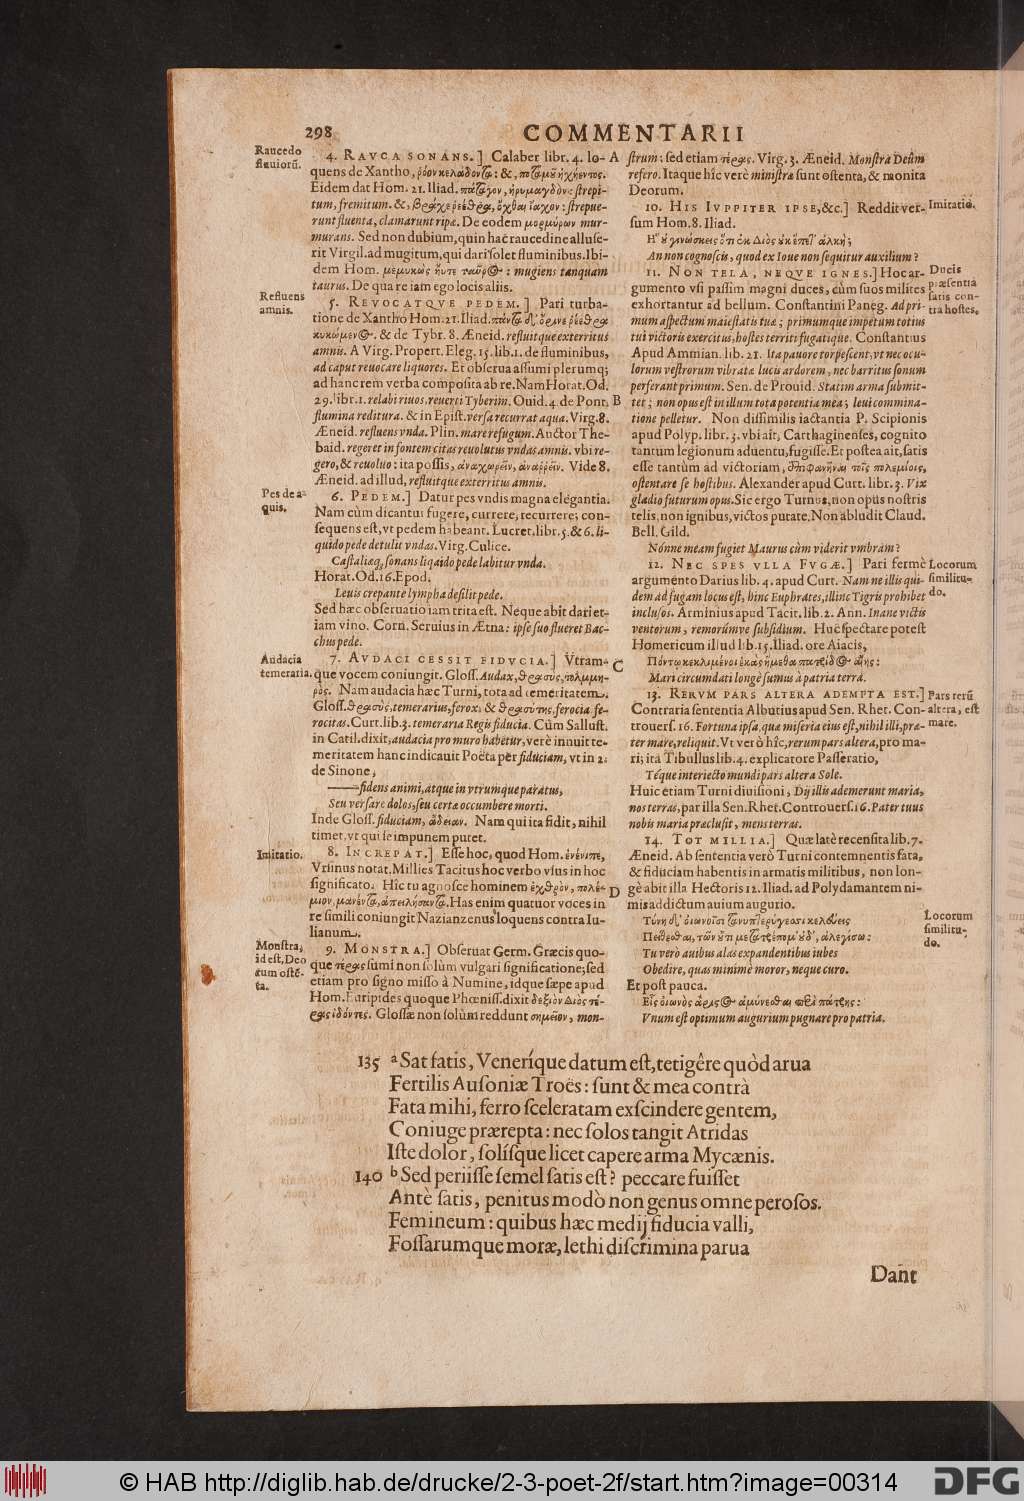 298
COMMENTARII
Raucedo
fluuiorū.
4. RAVCA SONANS.] Calaber libr. 4. lo- A
quens de Xantho, ῥόον κελάδοντα: &, ποταμοῦ ἠχήεντος.
Eidem dat Hom. 21. Iliad. πάταγον, ἠρυμαγδὸν: strepi-
tum, fremitum. &, βράχε ῥέεθρα, ὄχθαι ἴαχον: strepue-
runt fluenta, clamarunt ripæ. De eodem μορμύρων mur-
murans. Sed non dubium, quin hac raucedine alluse-
rit Virgil. ad mugitum, qui dari solet fluminibus. Ibi-
dem Hom. μεμυκὼς ἠύτε ταῦρος: mugiens tanquam
taurus. De qua re iam ego locis aliis.
Refluens
amnis.
5. REVOCATQVE PEDEM.] Pari turba-
tione de Xantho Hom. 21. Iliad. πάντα δ' ὄρινε ῥέεθρα
κυκώμενος. & de Tybr. 8. Æneid. refluitque exterritus
amnis. A Virg. Propert. Eleg. 15. lib. 1. de fluminibus,
ad caput reuocare liquores. Et obserua assumi plerumq;
ad hanc rem verba composita ab re. Nam Horat. Od.
29. libr. 1. relabi riuos, reuerti Tyberim. Ouid. 4. de Pont. B
flumina reditura. & in Epist. versa recurrat aqua. Virg. 8.
Æneid. refluens vnda. Plin. mare refugum. Auctor The-
baid. regeret in fontem citas reuolutus vndas amnis. vbi re-
gero, & reuoluo: ita possis, ἀναχωρεῖν, ἀναῤῥεῖν. Vide 8.
Æneid. ad illud, refluitque exterritus amnis.
Pes de a-
quis.
6. PEDEM.] Datur pes vndis magna elegantia.
Nam cùm dicantur fugere, currere, recurrere; con-
sequens est, vt pedem habeant. Lucret. libr. 5. & 6. li-
quido pede detulit vndas. Virg. Culice.
Castaliæq; sonans liquido pede labitur vnda.
Horat. Od. 16. Epod.
Leuis crepante lympha desilit pede.
Sed hæc obseruatio iam trita est. Neque abit dari et-
iam vino. Corn. Seruius in Ætna: ipse suo flueret Bac-
chus pede.
Audacia
temeraria.
7. AVDACI CESSIT FIDVCIA.] Vtram- C
que vocem coniungit. Gloss. Audax, θρασὺς, τολμη-
ρὸς. Nam audacia hæc Turni, tota ad temeritatem.
Gloss. θρασὺς, temerarius, ferox; & θρασύτης, ferocia fe-
rocitas. Curt. lib. 3. temeraria Regis fiducia. Cùm Sallust.
in Catil. dixit, audacia pro muro habetur, verè innuit te-
meritatem hanc indicauit Poëta per fiduciam, vt in 2.
de Sinone,
——fidens animi, atque in vtrumque paratus,
Seu versare dolos, seu certæ occumbere morti.
Inde Gloss. fiduciam, ἄδειαν. Nam qui ita fidit, nihil
timet, vt qui se impunem putet.
Imitatio.
8. INCREPAT.] Esse hoc, quod Hom. ἐνένιπε,
Vrsinus notat. Millies Tacitus hoc verbo vsus in hoc
significato. Hîc tu agnosce hominem ἐχθρὸν, πολέ- D
μιον, μανέντα, ἀπειλήσαντα. Has enim quatuor voces in
re simili coniungit Nazianzenus loquens contra Iu-
lianum.
Monstra,
id est, Deo
rum ostē-
ta.
9. MONSTRA.] Obseruat Germ. Græcis quo-
que τέρας sumi non solùm vulgari significatione; sed
etiam pro signo misso à Numine, idque sæpe apud
Hom. Euripides quoque Phœniss. dixit δεξιὸν Διὸς τέ-
ρας ἰδόντες. Glossæ non solùm reddunt σημεῖον, mon-
strum: sed etiam τέρας. Virg. 3. Æneid. Monstra Deûm
refero. Itaque hîc verè ministræ sunt ostenta, & monita
Deorum.
10. HIS IVPPITER IPSE, &c.] Reddit ver-
sum Hom. 8. Iliad.
Imitatio.
Ἢ οὐ γινώσκεις ὅτι ἐκ Διὸς οὐκ ἕπετ' ἀλκή;
An non cognoscis, quod ex Ioue non sequitur auxilium?
11. NON TELA, NEQVE IGNES.] Hoc ar-
gumento vsi passim magni duces, cùm suos milites
exhortantur ad bellum. Constantini Paneg. Ad pri-
mum aspectum maiestatis tuæ; primumque impetum totius
tui victoris exercitus, hostes territi fugatique. Constantius
Apud Ammian. lib. 21. Ita pauore torpescent, vt nec ocu-
lorum vestrorum vibratæ lucis ardorem, nec barritus sonum
perferant primum. Sen. de Prouid. Statim arma submit-
tet; non opus est in illum tota potentia mea; leui commina-
tione pelletur. Non dissimilis iactantia P. Scipionis
apud Polyp. libr. 3. vbi ait, Carthaginenses, cognito
tantum legionum aduentu, fugisse. Et postea ait, satis
esse tantùm ad victoriam, ἐπιφανῆναι τοῖς πολεμίοις,
ostentare se hostibus. Alexander apud Curt. libr. 3. Vix
gladio futurum opus. Sic ergo Turnus, non opus nostris
telis, non ignibus, victos putate. Non abludit Claud.
Bell. Gild.
Ducis
præsentia
satis con-
tra hostes.
Nónne meam fugiet Maurus cùm viderit vmbram?
12. NEC SPES VLLA FVGÆ.] Pari fermè
argumento Darius lib. 4. apud Curt. Nam ne illis qui-
dem ad fugam locus est, hinc Euphrates, illinc Tigris prohibet
inclusos. Arminius apud Tacit. lib. 2. Ann. Inane victis
ventorum, remorúmve subsidium. Huc spectare potest
Homericum illud lib. 15. Iliad. ore Aiacis,
Locorum
similitu-
do.
Πόντῳ κεκλιμένοι ἑκὰς ἥμεθα πατρίδος αἴης:
Mari circumdati longè sumus à patria terra.
13. RERVM PARS ALTERA ADEMPTA EST.]
Contraria sententia Albutius apud Sen. Rhet. Con-
trouers. 16. Fortuna ipsa, qua miseria eius est, nihil illi, præ-
ter mare, reliquit. Vt verò hîc, rerum pars altera, pro ma-
ri; ita Tibullus lib. 4. explicatore Passeratio,
Pars rerū
altera, est
mare.
Téque interiecto mundi pars altera Sole.
Huic etiam Turni diuisioni, Dij illis ademerunt maria,
nos terras, par illa Sen. Rhet. Controuers. 16. Pater tuus
nobis maria præclusit, mens terras.
14. TOT MILLIA.] Quæ latè recensita lib. 7.
Æneid. Ab sententia verò Turni contemnentis fata,
& fiduciam habentis in armatis militibus, non lon-
gè abit illa Hectoris 12. Iliad. ad Polydamantem ni-
mis addictum auium augurio.
Locorum
similitu-
do.
Τύνη δ' οἰωνοῖσι τανυπτερύγεσσι κελεύεις
Πείθεσθαι, τῶν οὔτι μετατρέπομ' οὐδ' ἀλεγίζω:
Tu verò auibus alas expandentibus iubes
Obedire, quas minimè moror, neque curo.
Et post pauca.
Εἷς οἰωνὸς ἄριστος ἀμύνεσθαι περὶ πάτρης:
Vnum est optimum augurium pugnare pro patria.
135 a Sat fatis, Veneríque datum est, tetigêre quòd arua
Fertilis Ausoniæ Troës: sunt & mea contrà
Fata mihi, ferro sceleratam exscindere gentem,
Coniuge prærepta: nec solos tangit Atridas
Iste dolor, solísque licet capere arma Mycænis.
140 b Sed periisse semel satis est? peccare fuisset
Antè satis, penitus modò non genus omne perosos.
Femineum: quibus hæc medij fiducia valli,
Fossarumque moræ, lethi discrimina parua
Dant
© HAB http://diglib.hab.de/drucke/2-3-poet-2f/start.htm?image=00314
DFG